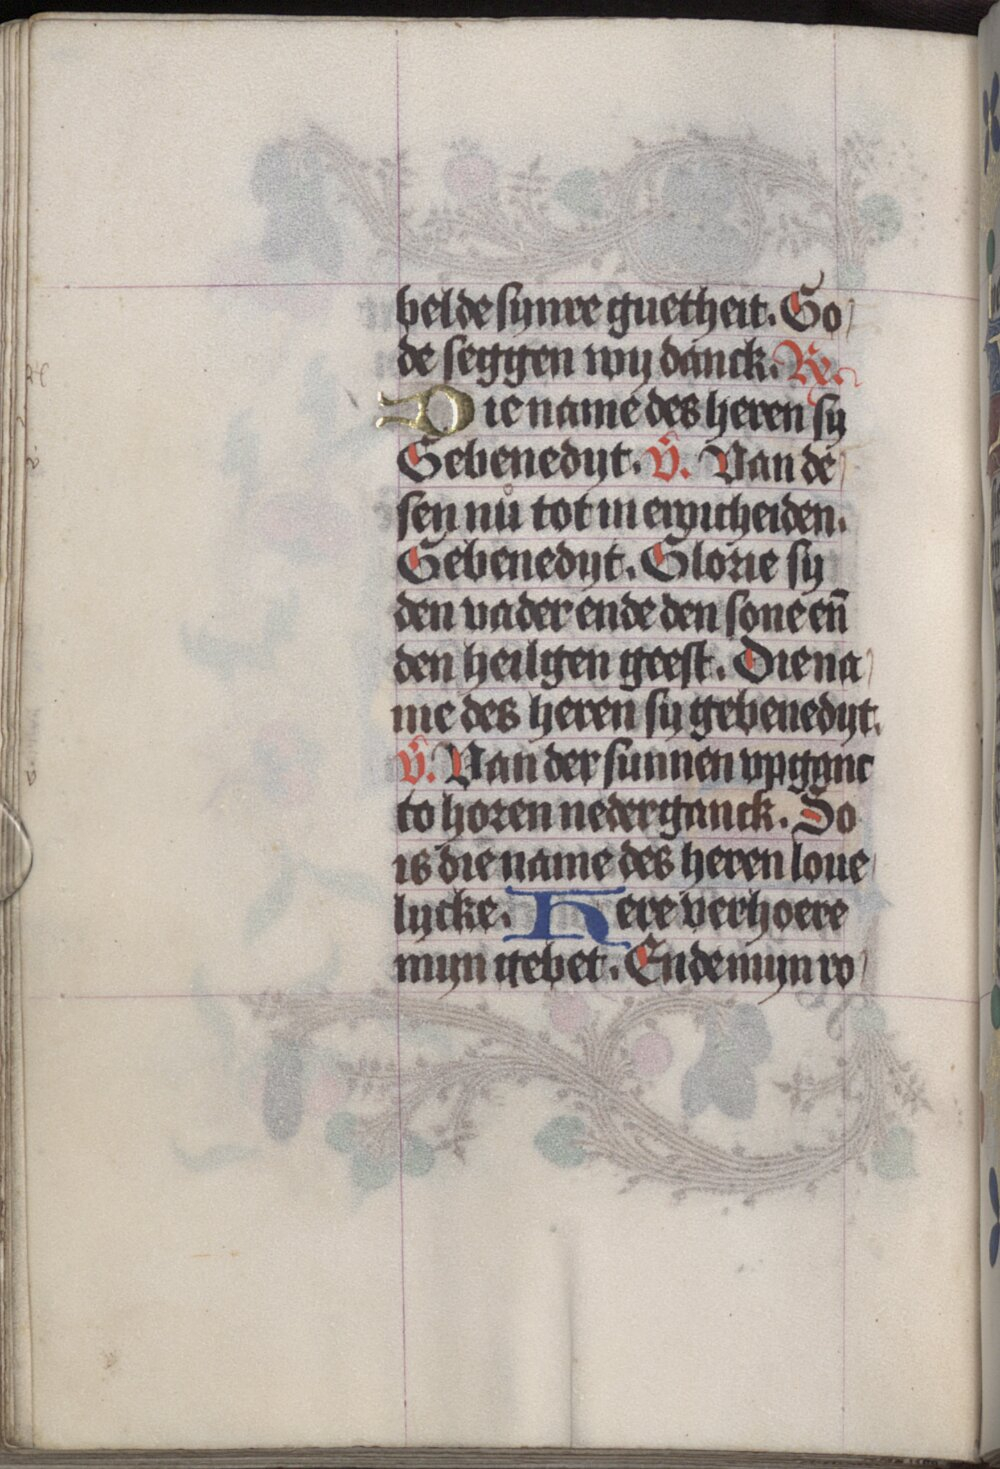 belde synre guetheit. Go
de seggen wy danck. R.
Die name des heren sy
Gebenedijt. V. Van de
sen nů tot in ewicheiden.
Gebenedijt. Glorie sy
den vader ende den sone en̄
den heiligen geest. Die na
me des heren sy gebenedijt.
V. Van der sunnen vpganc
to horen nederganck. So
is die name des heren loue
lycke. Here verhoere
myn gebet. Ende myn ro